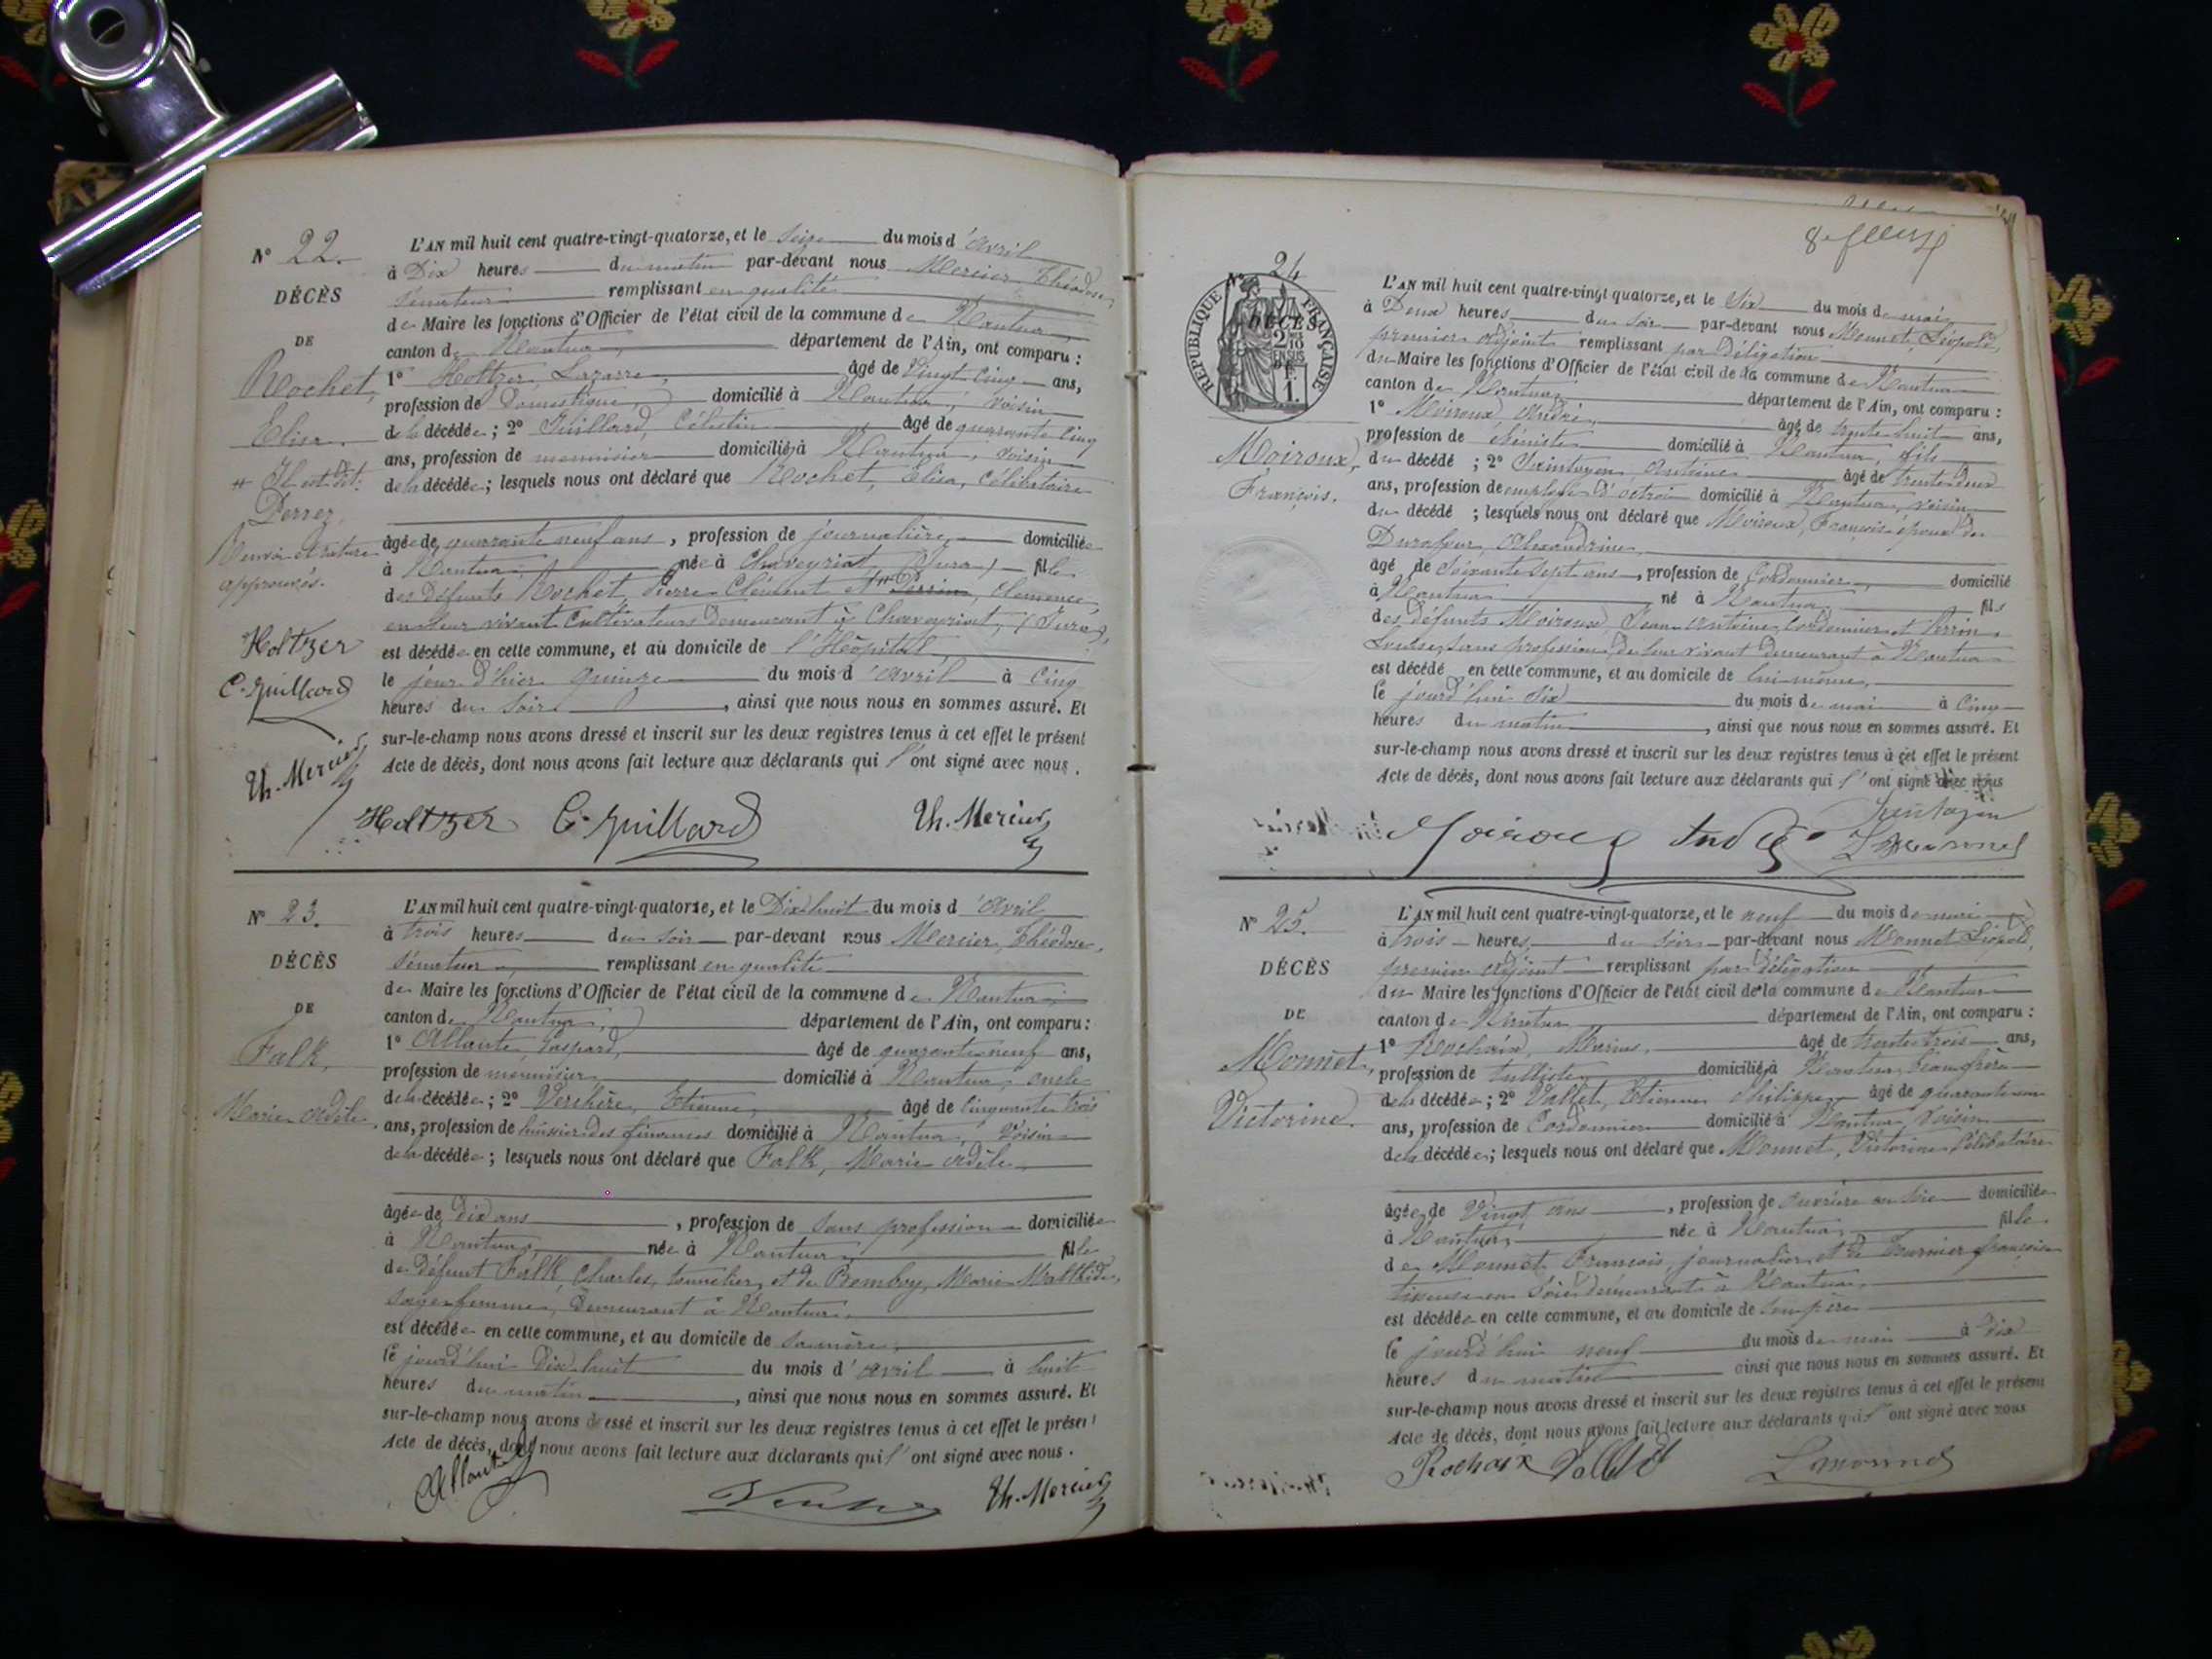 N° 22.
DÉCÈS
DE
Rochet,
Elisa.
# Il est dit:
Perrez,
Renvoi et rature
approuvés.
Holtzer
C. Guillard
Th. Mercier
L'AN mil huit cent quatre-vingt-quatorze, et le Seize du mois d'Avril
à Dix heures du matin par-devant nous Mercier, Théodore,
Sénateur remplissant en qualité
de Maire les fonctions d'Officier de l'état civil de la commune de Nantua,
canton de Nantua, département de l'Ain, ont comparu :
1° Holtzer, Lazarre, âgé de Vingt cinq ans,
profession de Domestique, domicilié à Nantua, voisin
de la décédée ; 2° Guillard, Célestin âgé de quarante cinq
ans, profession de menuisier domicilié à Nantua, voisin
de la décédée ; lesquels nous ont déclaré que Rochet, Elisa, Célibataire
âgée de quarante neuf ans, profession de journalière, domiciliée
à Nantua, née à Chaveyriat (Jura) fille
des défunts Rochet, Pierre Clément et # Clémence,
en leur vivant Cultivateurs Demeurant à Chaveyriat, (Jura),
est décédée en cette commune, et au domicile de l'Hôpital
le jour d'hier quinze du mois d'avril à Cinq
heures du Soir, ainsi que nous nous en sommes assuré. Et
sur-le-champ nous avons dressé et inscrit sur les deux registres tenus à cet effet le présent
Acte de décès, dont nous avons fait lecture aux déclarants qui l'ont signé avec nous.
Holtzer C. Guillard Th. Mercier
N° 23.
DÉCÈS
DE
Falk,
Marie Adèle.
L'AN mil huit cent quatre-vingt-quatorze, et le Dix huit du mois d'Avril
à trois heures du soir par-devant nous Mercier, Théodore,
Sénateur, remplissant en qualité
de Maire les fonctions d'Officier de l'état civil de la commune de Nantua,
canton de Nantua, département de l'Ain, ont comparu :
1° Allante, Gaspard, âgé de quarante neuf ans,
profession de menuisier domicilié à Nantua, oncle
de la décédée ; 2° Verchère, Etienne, âgé de cinquante trois
ans, profession de huissier des finances domicilié à Nantua, Voisin
de la décédée ; lesquels nous ont déclaré que Falk, Marie Adèle
âgée de dix ans, profession de Sans profession domiciliée
à Nantua, née à Nantua, fille
de défunt Falk, Charles, tonnelier, et de Bomboy, Marie Malthide,
Sage-femme, Demeurant à Nantua,
est décédée en cette commune, et au domicile de Sa mère,
le jourd'hui Dix huit du mois d'avril à huit
heures du matin, ainsi que nous nous en sommes assuré. Et
sur-le-champ nous avons dressé et inscrit sur les deux registres tenus à cet effet le présent
Acte de décès, dont nous avons fait lecture aux déclarants qui l'ont signé avec nous.
Allante Th. Mercier
N° 24
RÉPUBLIQUE FRANÇAISE
DÉCÈS
2/10
EN SUS
DE
1.
Moiroux,
François.
L'AN mil huit cent quatre-vingt quatorze, et le Six du mois de mai
à Deux heures du soir par-devant nous Monnet, Léopold,
premier adjoint remplissant par délégation
du Maire les fonctions d'Officier de l'état civil de la commune de Nantua
canton de Nantua, département de l'Ain, ont comparu :
1° Moiroux, André, âgé de trente huit ans,
profession de ébéniste domicilié à Nantua, fils
du décédé ; 2° Saintoyen, Antoine âgé de trente deux
ans, profession de employé d'octroi domicilié à Nantua, voisin
du décédé ; lesquels nous ont déclaré que Moiroux, François époux de
Durafour, Alexandrine,
âgé de Soixante Sept ans, profession de Cordonnier, domicilié
à Nantua né à Nantua, fils
des défunts Moiroux, Jean Antoine, Cordonnier et Perrin
Louise, Sans profession, de leur vivant demeurant à Nantua
est décédé en cette commune, et au domicile de lui-même,
le jourd'hui Six du mois de mai à Cinq
heures du matin, ainsi que nous nous en sommes assuré. Et
sur-le-champ nous avons dressé et inscrit sur les deux registres tenus à cet effet le présent
Acte de décès, dont nous avons fait lecture aux déclarants qui l'ont signé avec nous
Moiroux André Sintoyen
L Monnet
N° 25.
DÉCÈS
DE
Monnet,
Victorine.
L'AN mil huit cent quatre-vingt-quatorze, et le neuf du mois de mai
à trois heures, du soir par-devant nous Monnet Léopold,
premier adjoint remplissant par délégation
du Maire les fonctions d'Officier de l'état civil de la commune de Nantua
canton de Nantua département de l'Ain, ont comparu :
1° Rochaix, Marius, âgé de trente trois ans,
profession de tulliste domicilié à Nantua, beau frère
de la décédée ; 2° Vallet, Etienne Philippe âgé de quarante un
ans, profession de Cordonnier domicilié à Nantua, voisin
de la décédée ; lesquels nous ont déclaré que Monnet, Victorine Célibataire
âgée de Vingt ans, profession de ouvrière en soie domiciliée
à Nantua, née à Nantua, fille
de Monnet François, journalier, et de Fournier françoise
tisseuse en Soie demeurant à Nantua,
est décédée en cette commune, et au domicile de Son père
le jourd'hui neuf du mois de mai à Dix
heures du matin ainsi que nous nous en sommes assuré. Et
sur-le-champ nous avons dressé et inscrit sur les deux registres tenus à cet effet le présent
Acte de décès, dont nous avons fait lecture aux déclarants qui l'ont signé avec nous
Rochaix Vallet L Monnet